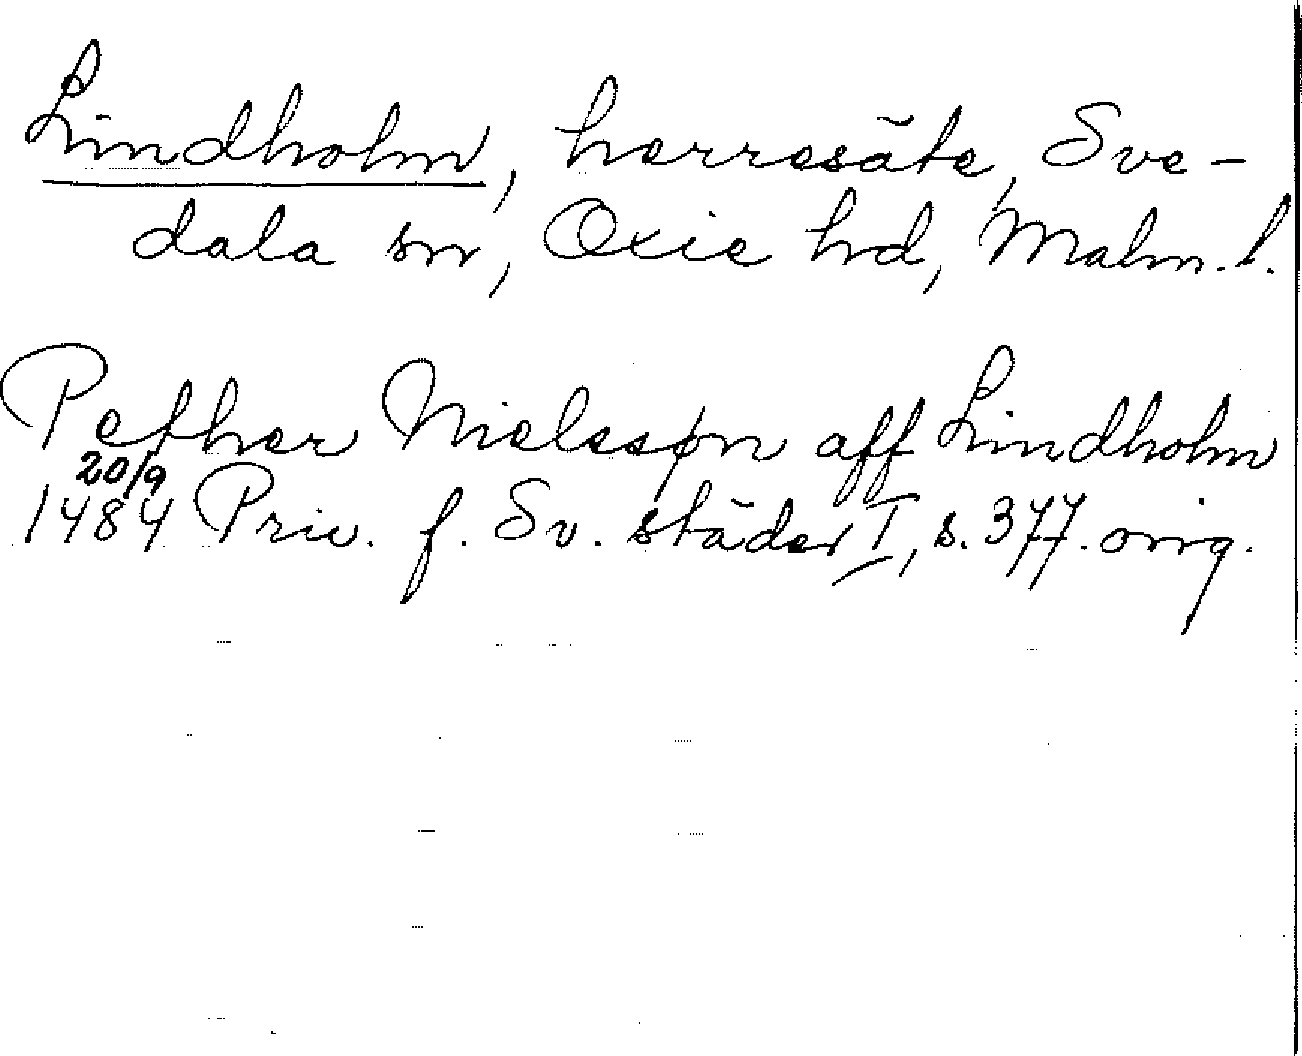 Lindholm, herresäte, Sve-
dala sn, Oxie hd, Malm. l.
Pether Nielssøn aff Lindholm
20/9
1484 Priv. f. Sv. städer I, s. 377. orig.